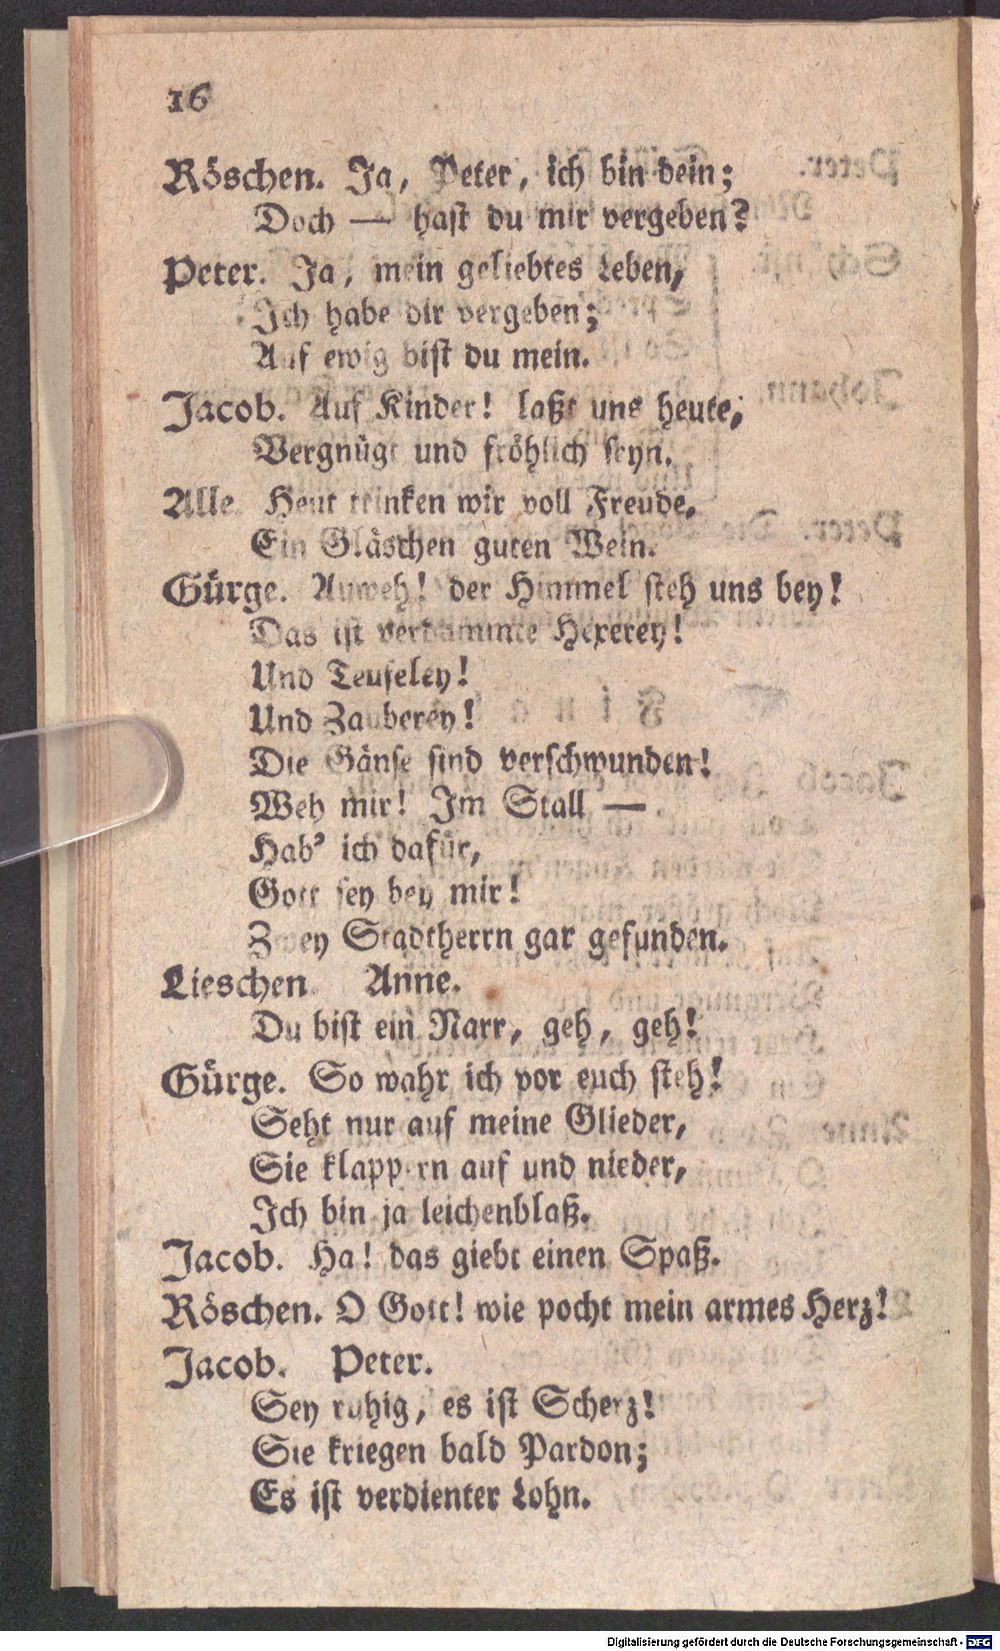 16
Röschen. Ja, Peter, ich bin dein;
Doch — hast du mir vergeben?
Peter. Ja, mein geliebtes Leben,
Ich habe dir vergeben;
Auf ewig bist du mein.
Jacob. Auf Kinder! laßt uns heute,
Vergnügt und fröhlich seyn.
Alle. Heut trinken wir voll Freude,
Ein Gläschen guten Wein.
Gürge. Auweh! der Himmel steh uns bey!
Das ist verdammte Hexerey!
Und Teufeley!
Und Zauberey!
Die Gänse sind verschwunden!
Weh mir! Im Stall —
Hab' ich dafür,
Gott sey bey mir!
Zwey Stadtherrn gar gefunden.
Lieschen. Anne.
Du bist ein Narr, geh, geh!
Gürge. So wahr ich vor euch steh!
Seht nur auf meine Glieder,
Sie klappern auf und nieder,
Ich bin ja leichenblaß.
Jacob. Ha! das giebt einen Spaß.
Röschen. O Gott! wie pocht mein armes Herz!
Jacob. Peter.
Sey ruhig, es ist Scherz!
Sie kriegen bald Pardon;
Es ist verdienter Lohn.
Digitalisierung gefördert durch die Deutsche Forschungsgemeinschaft - DFG